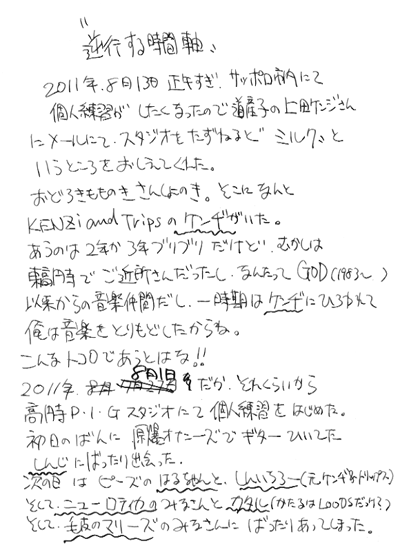 "逆行する時間軸、
2011年.8月13日 正午すぎ. サッポロ市内にて
個人練習が したくなったので 道産子の 上田ケンジさん
にメールにて. スタジオをたずねると" ミルク、と
いうところをおしえてくれた。
おどろきもものき さんしょのき。そこになんと
KENZi and Tripsの ケンヂがいた。
あうのは 2年か 3年ブリブリ だけど. むかしは
東高円寺で ご近所さんだったし. なんたって GOD(1983〜)
以来からの音楽仲間だし. 一時期は ケンヂにひろわれて
俺は音楽をとりもどしたからね。
こんなトコロであうとはな!!
8月1日
2011年. だか. それくらいから
高時 P・I・G スタジオにて 個人練習をはじめた。
初日のばんに 原爆オナニーズで ギターひいてた
しんじにばったり出会った.
次の日は ピーズの はるちゃんと. しんいちろー(元ケンヂ&トリップス)
そして. ニューロティカのみなさんと. カタル(かたるはLOODSだっけ?)
そして. 毛皮のマリーズのみなさんに ばったりあってしまった。